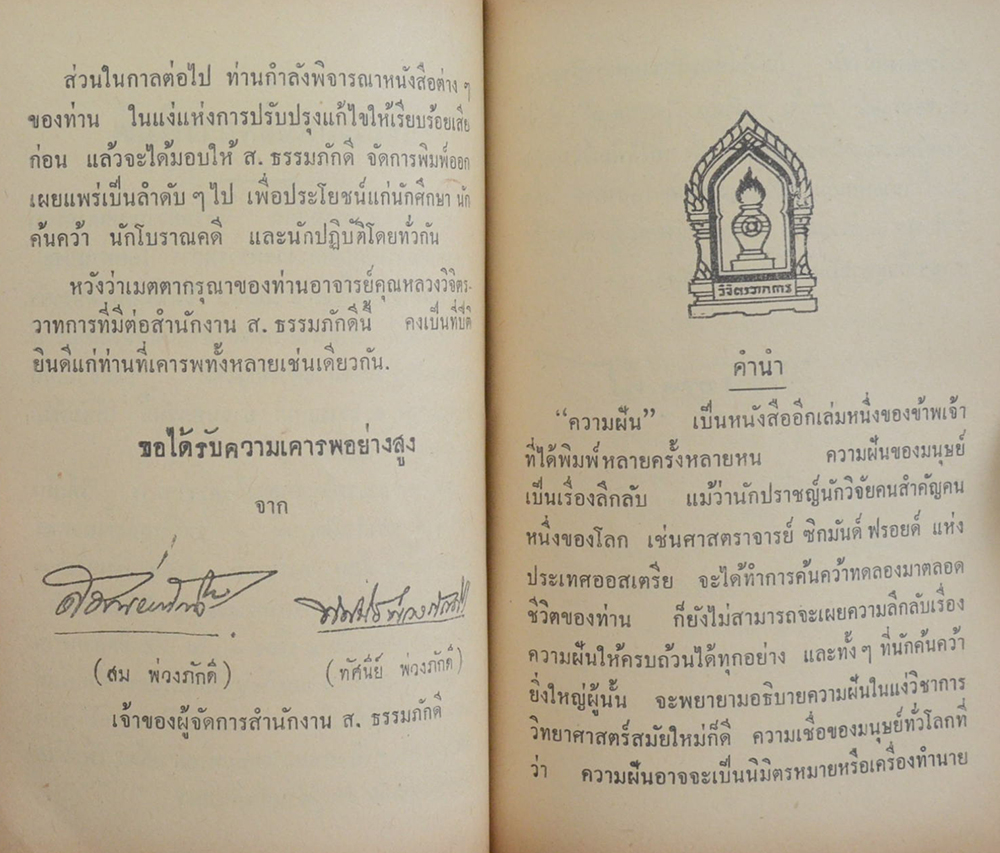 ส่วนในกาลต่อไป ท่านกำลังพิจารณาหนังสือต่าง ๆ
ของท่าน ในแง่แห่งการปรับปรุงแก้ไขให้เรียบร้อยเสีย
ก่อน แล้วจะได้มอบให้ ส. ธรรมภักดี จัดการพิมพ์ออก
เผยแพร่เป็นลำดับ ๆ ไป เพื่อประโยชน์แก่นักศึกษา นัก
ค้นคว้า นักโบราณคดี และนักปฏิบัติโดยทั่วกัน
หวังว่าเมตตากรุณาของท่านอาจารย์คุณหลวงวิจิตร-
วาทการที่มีต่อสำนักงาน ส. ธรรมภักดีนี้ คงเป็นที่ปีติ
ยินดีแก่ท่านที่เคารพทั้งหลายเช่นเดียวกัน.
ขอได้รับความเคารพอย่างสูง
จาก
(สม พ่วงภักดี) (ทัศนีย์ พ่วงภักดี)
เจ้าของผู้จัดการสำนักงาน ส. ธรรมภักดี
วิจิตรวาทการ
คำนำ
“ความฝัน” เป็นหนังสืออีกเล่มหนึ่งของข้าพเจ้า
ที่ได้พิมพ์หลายครั้งหลายหน ความฝันของมนุษย์
เป็นเรื่องลึกลับ แม้ว่านักปราชญ์นักวิจัยคนสำคัญคน
หนึ่งของโลก เช่นศาสตราจารย์ ซิกมันด์ ฟรอยด์ แห่ง
ประเทศออสเตรีย จะได้ทำการค้นคว้าทดลองมาตลอด
ชีวิตของท่าน ก็ยังไม่สามารถจะเผยความลึกลับเรื่อง
ความฝันให้ครบถ้วนได้ทุกอย่าง และทั้ง ๆ ที่นักค้นคว้า
ยิ่งใหญ่ผู้นั้น จะพยายามอธิบายความฝันในแง่วิชาการ
วิทยาศาสตร์สมัยใหม่ก็ดี ความเชื่อของมนุษย์ทั่วโลกที่
ว่า ความฝันอาจจะเป็นนิมิตรหมายหรือเครื่องทำนาย